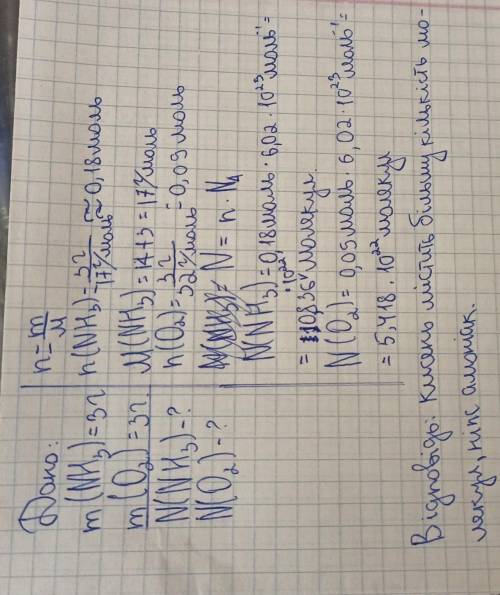 Дано:
m(NH₃)=3г
m(O₂)=3г.
N(NH₃)-?
N(O₂)-?
n=m/M
n(NH₃)=3г/17г/моль≈0,18моль
M(NH₃)=14+3=17г/моль
n(O₂)=3г/32г/моль=0,09моль
N=n·Nₐ
N(NH₃)=0,18моль·6,02·10²³моль⁻¹=
=1,0836·10²²молекул.
N(O₂)=0,09моль·6,02·10²³моль⁻¹=
=5,418·10²²молекул
Відповідь: Кисень містить більшу кількість мо-
лекул, ніж амоніак.